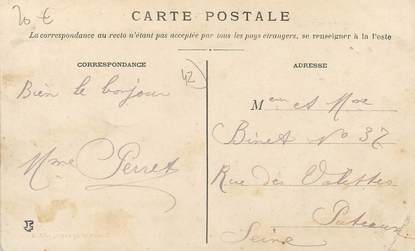 20 €
CARTE POSTALE
La correspondance au recto n'étant pas acceptée par tous les pays étrangers, se renseigner à la Poste
CORRESPONDANCE
42
Bien le bonjour
Mme Perret
ADRESSE
M et Mme
Binet No 37
Rue des Valettes
Puteaux
Seine